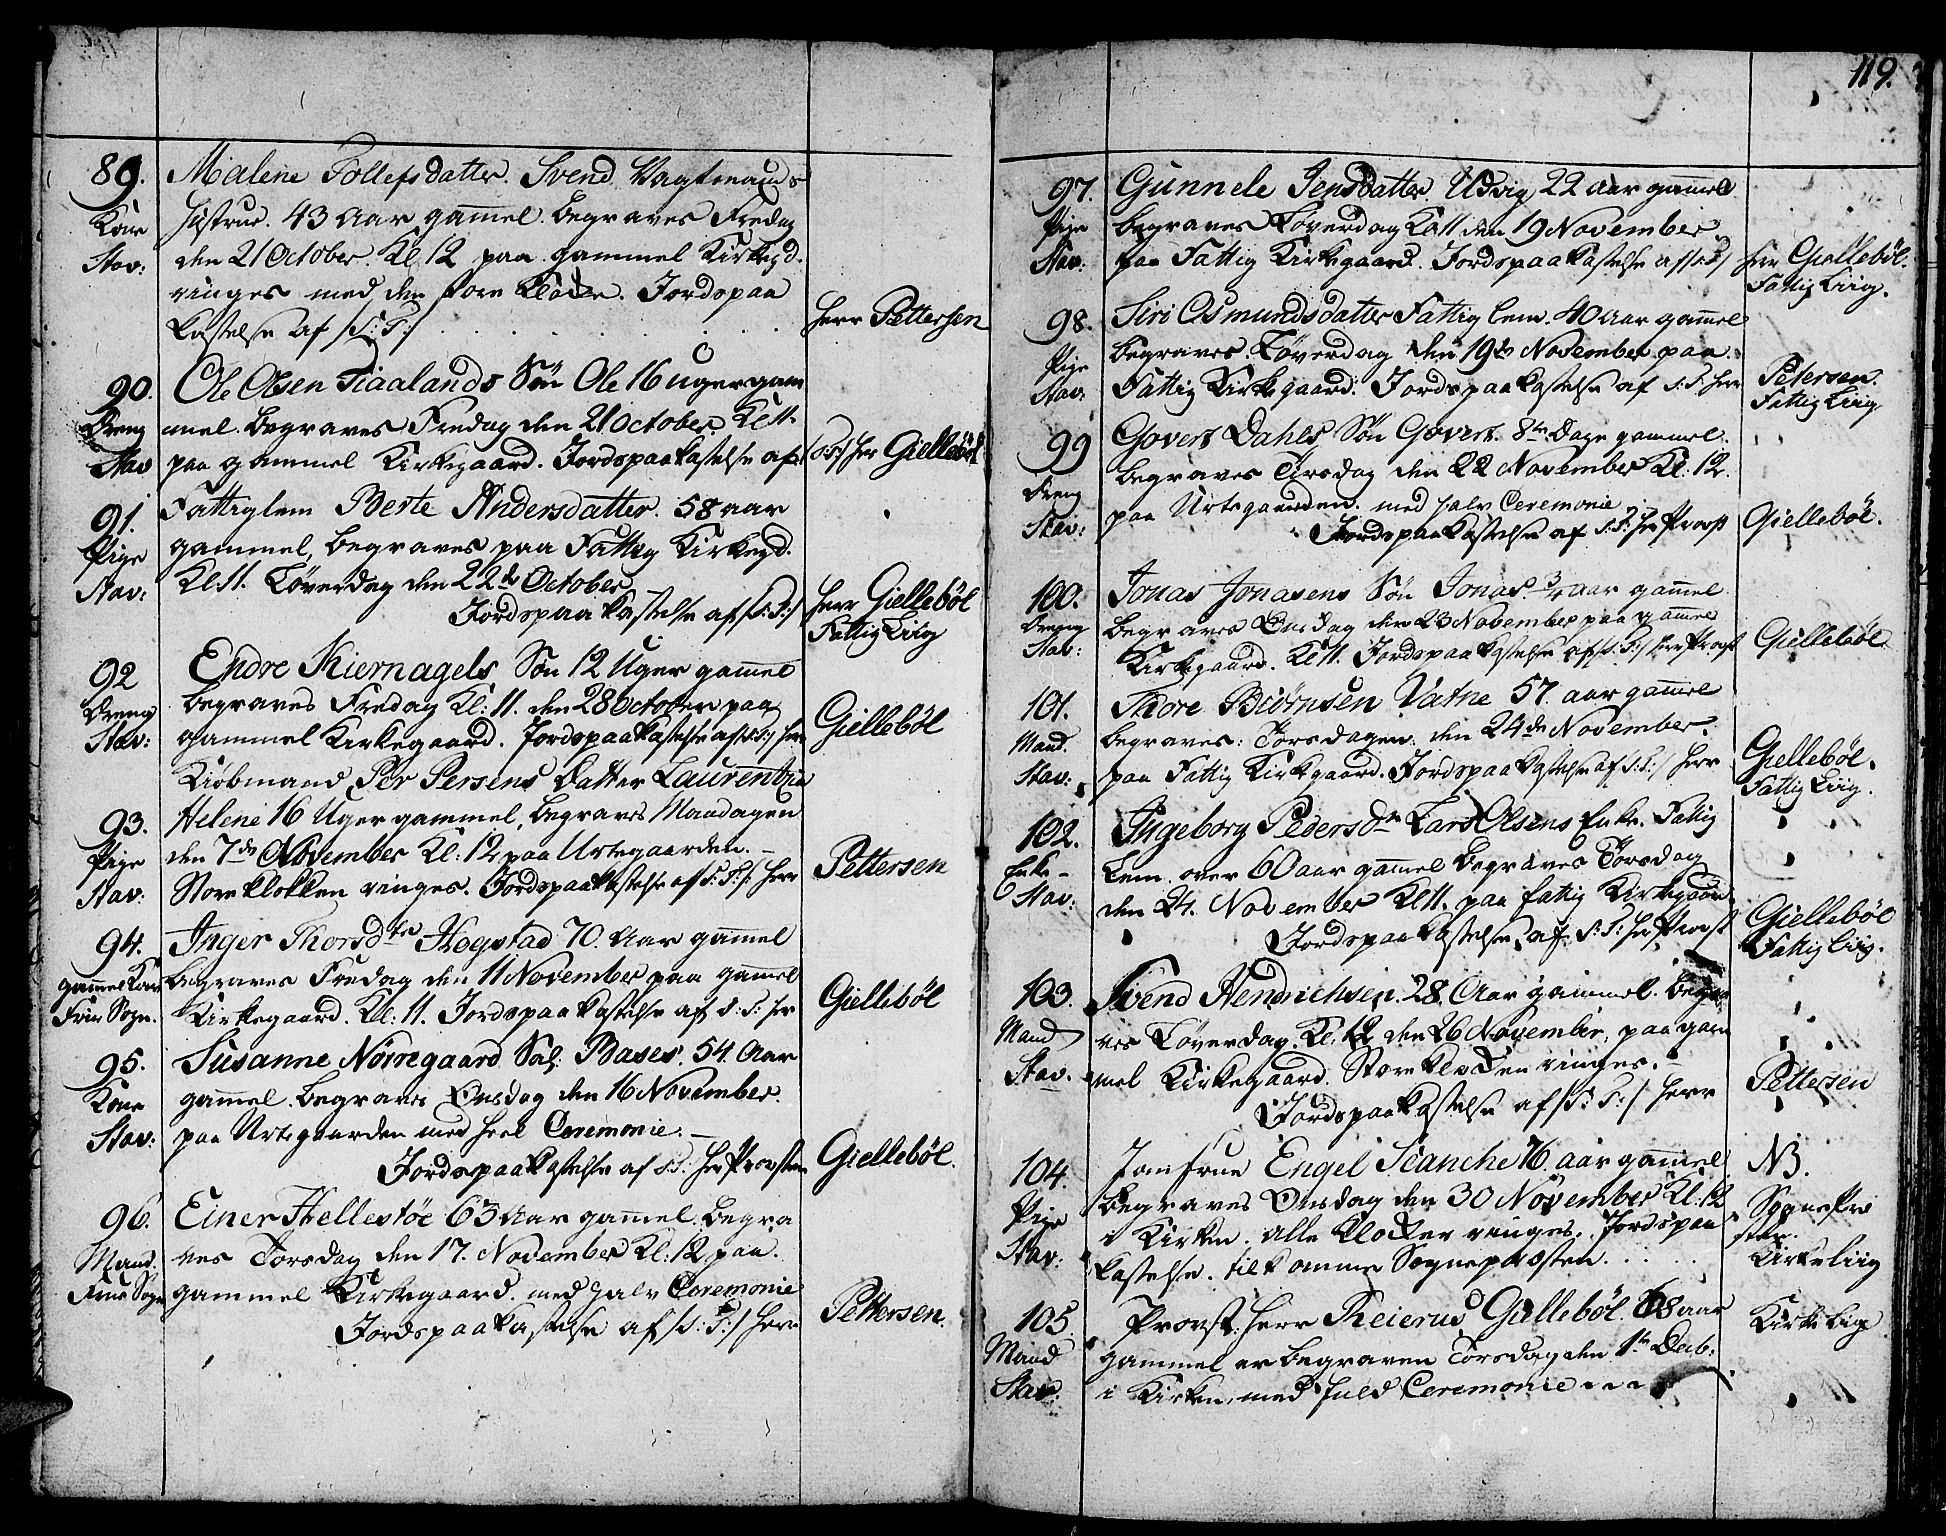 89. Malene Tollefsdatter. Svend Vagtmands
Kone Hustrue. 43 Aar gammel. begraves Fredag
Stav: den 21 October Kl. 12 paa gammel Kirkegd.
ringes med den store klocke. Jordspaa
kastelse af /S:T:/ Herr Pettersen
90. Ole Olsen Tiaalands Søn Ole 16 uger gam
Dreng mel. begraves Fredag den 21 October Kl 11.
Stav paa gammel Kirkegaard. Jordspaakastelse af /S:T/ Her Giellebøl
91. Fattiglem Berte Andersdatter. 58 aar
Pige gammel, begraves paa Fattig Kirkegd.
Stav: Kl: 11. Løverdag den 22de October
Jordspaakastelse af /S:T:/ Herr Giellebøl
Fattig Liig
92 Endre Kiernagels Søn 12 Uger gam̄el
Dreng begraves Fredag Kl: 11. den 28 October paa
Stav: gammel Kirkegaard. Jordspaakastelse af /S:T:/ Herr Giellebøl
Kiøbmand Per Persens Datter Laurentzia
93. Helene 16 Uger gammel, begraves Mandagen
Pige den 7de November Kl: 12 paa Urtegaarden.
Stav: Storeklokken ringes. Jordspaakastelse af S:T:/ Herr Pettersen
94. Inger Thorsdtr Hogstad 70. Aar gam̄el
gam̄el Kone begraves Fredag den 11 November paa gam̄el
Frue Sogn. Kirkegaard. Kl: 11. Jordspaakastelse af S:T: Hr Giellebøl
95. Susanne Nørregaard Sal. Bases. 54. Aar
Kone gam̄el. begraves Onsdag den 16 November
Stav: paa Urtegaarden med heel Ceremonie.
Jordspaakastelse af S:T: Hr Provsten Giellebøl.
96. Einer Hellestøe 63 Aar gam̄el. begra
Mand. ves Torsdag den 17. November Kl: 12 paa
Frue Sogn gammel Kirkegaard. med halv Ceremonie
Jordspaakastelse af /S:T:/ Herr Pettersen.
119.
97. Gunnele Jensdatter. Udvig 22 aar gam̄el
Pige begraves Løverdag Kl 11 den 19 November
Stav: paa Fattig Kirkegaard. Jordspaakastelse af /S:T/ Herr Giellebøl.
Fattig Liig.
98. Siri Osmundsdatter Fattiglem. 40 aar gam̄el
Pige begraves Løverdag den 19de November paa
Stav: Fattig Kirkegaard. Jordspaakastelse af S:T: Herr Petersen.
Fattig Liig
99 Govert Dahls Søn Govert. 8te Dage gammel.
Dreng begraves Tirsdag den 22 November Kl: 12.
Stav: paa Urtegaarden. med halv Ceremonie
Jordspaakastelse af S:T: Hr Provst Giellebøl.
100. Jonas Jonasens Søn Jonas. 3/4 aar gam̄el
Dreng begraves Onsdag den 23 November paa gam̄el
Stav: Kirkegaard. Kl 11. Jordspaakastelse af /S:T:/ Herr Provst Giellebøl
101. Thore Biørnsen Vatne 57. aar gam̄el
Mand. begraves: Torsdagen. den 24de November.
Stav: paa Fattig Kirkegaard. Jordspaakastelse af S:T:/ Herr Giellebøl.
Fattig Liig.
102. Ingeborg Pedersdr Lars Olsens Enke. Fattig
Enke- Lem. over 60 aar gam̄el begraves Torsdag
Stav: den 24. November Kl 11. paa fattig Kirkegaard
Jordspaakastelse af S:T: Hr Provst Giellebøl
Fattig Liig.
103. Svend Hendrichsen. 28. Aar gam̄el. begra
Mand ves Løverdag. Kl: 12 den 26 November. paa gam
Stav. mel Kirkegaard. Storeklocken ringes.
Jordspaakastelse af /S:T:/ Herr Pettersen
104. Jomfrue Engel Scanche 76. aar gam̄el NB.
Pige begraves Onsdag den 30 November Kl: 12 Sognepræ
Stav: i Kirken. alle klocker ringes. Jordspaa sten.
kastelse. tilkomme Sognepræsten. Kirkeliig
105. Provst. Herr Reierus Giellebøl. 68 aar Kirke Liig
Mand gammel er begraven Torsdag den 1te Decb:
Stav: i Kirken, med fuld Ceremonie